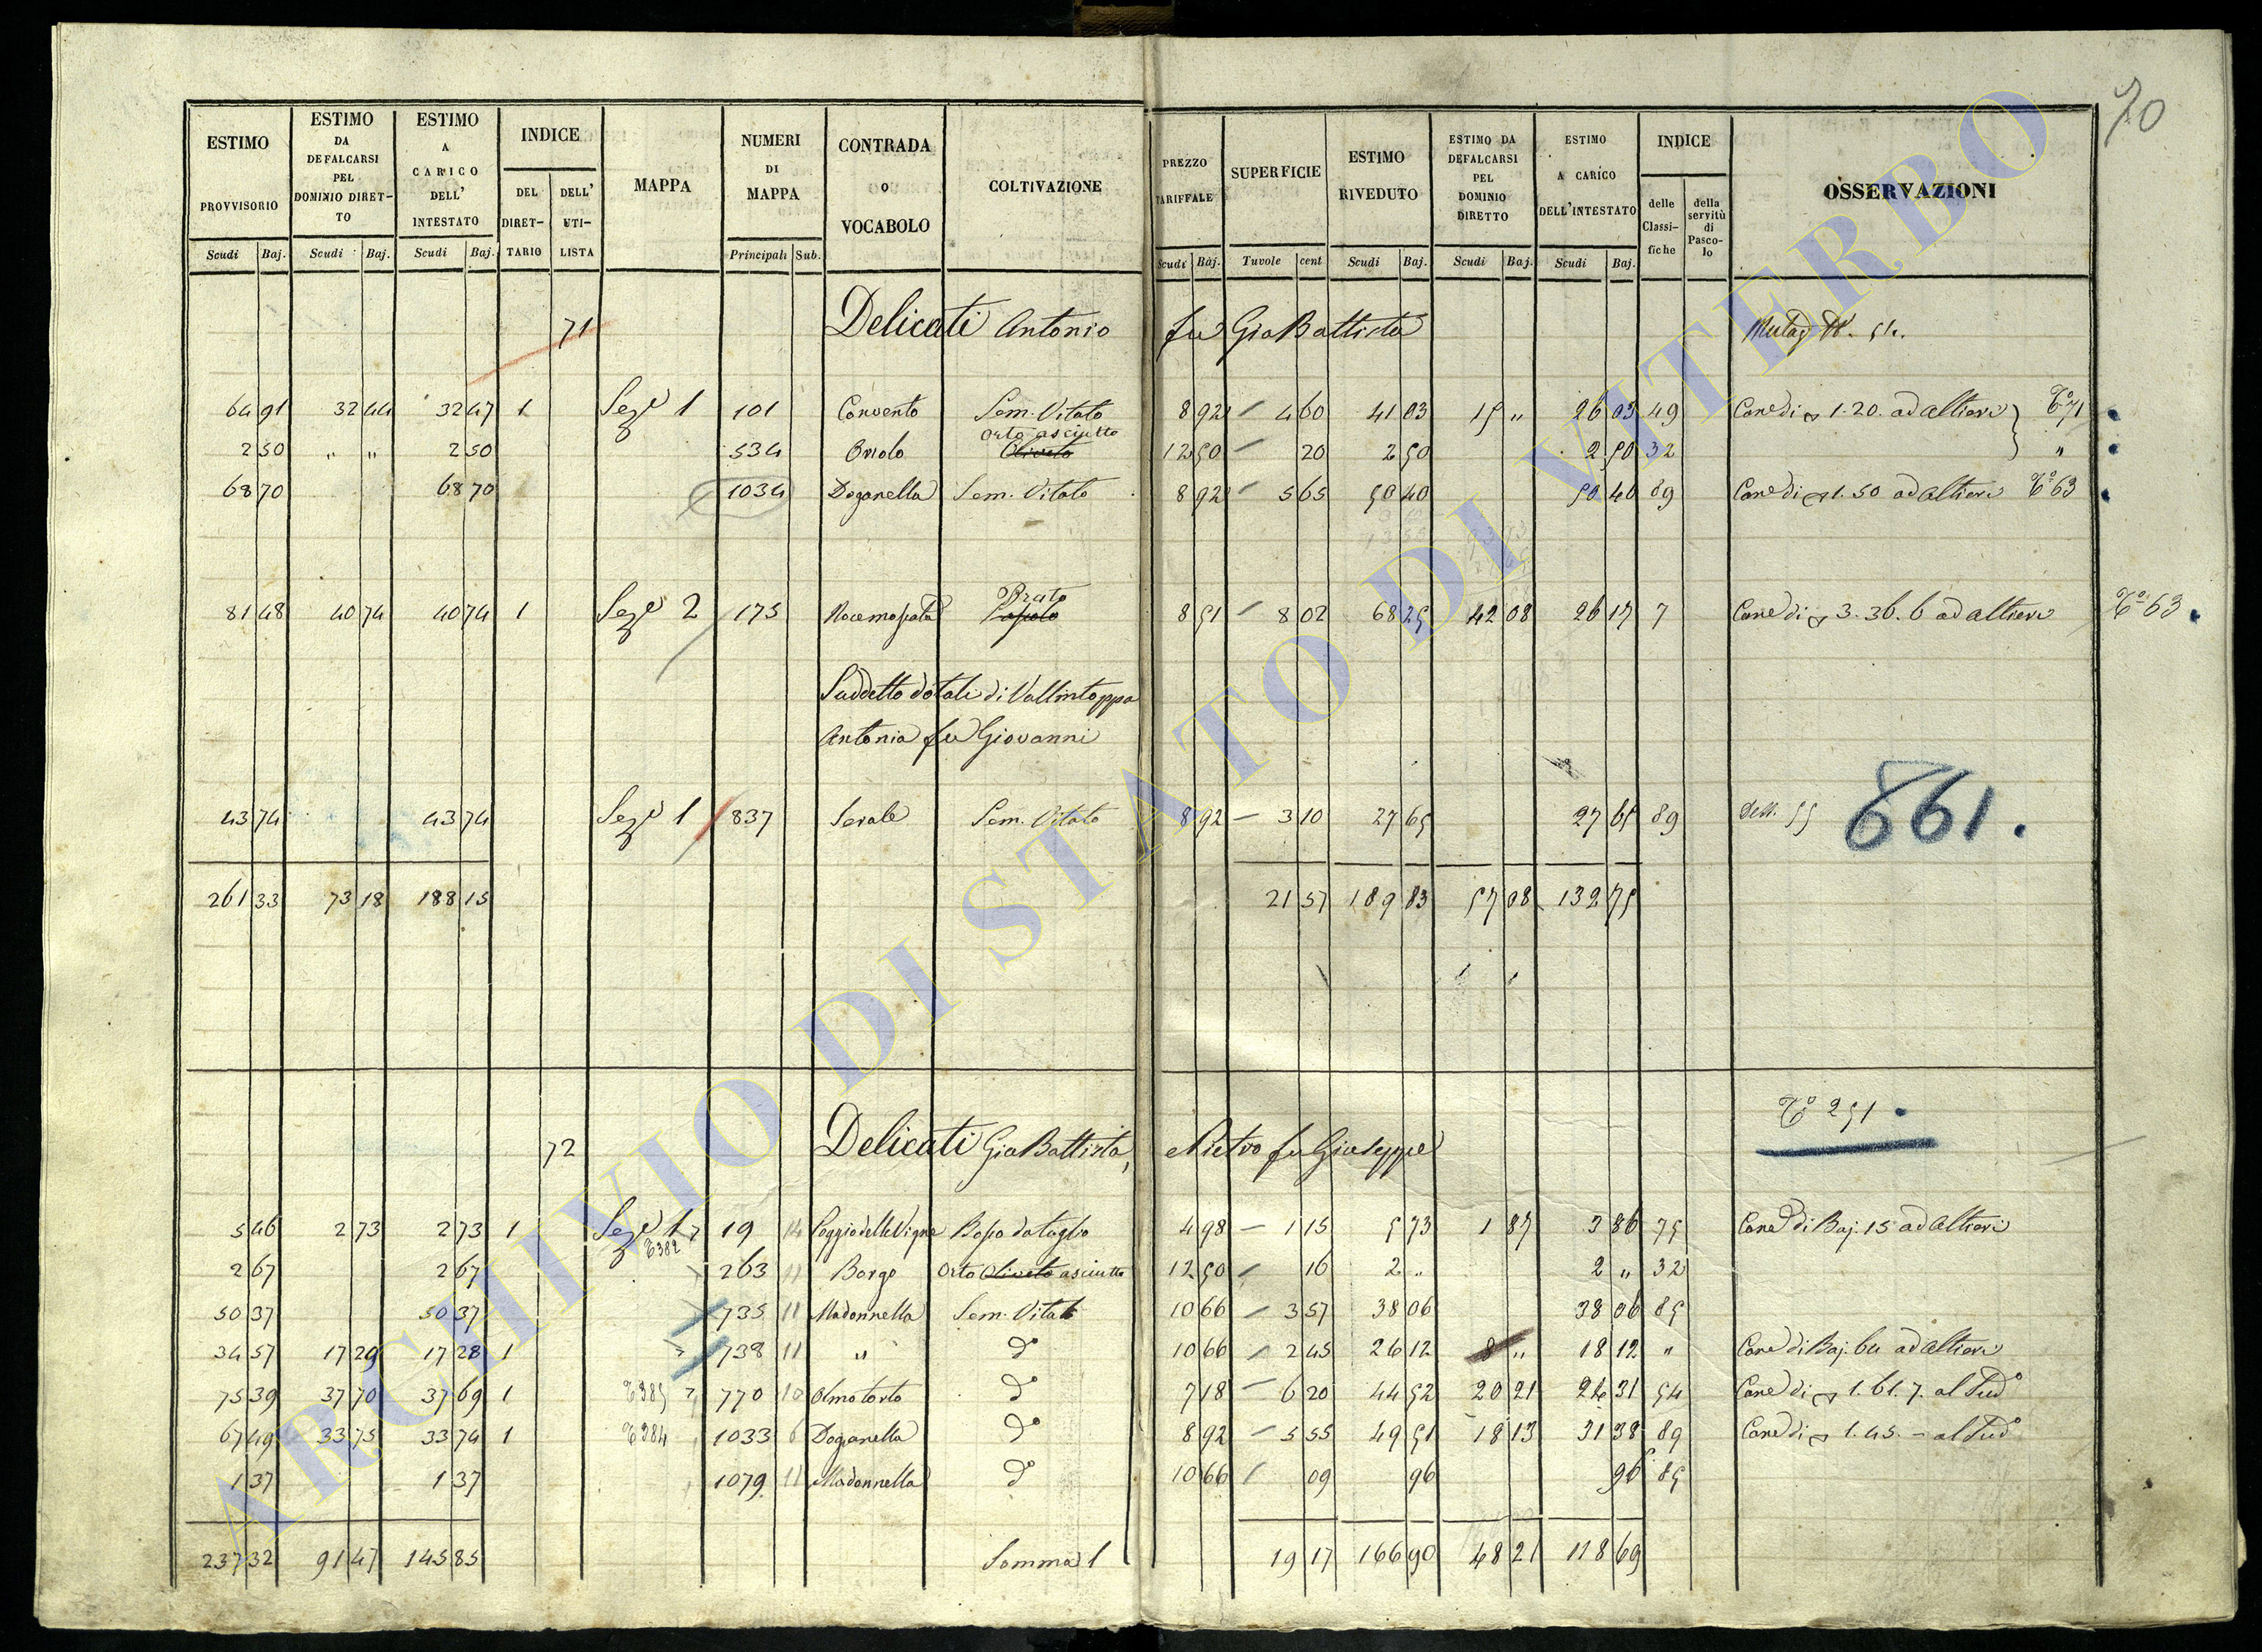 70
ESTIMO PROVVISORIO | ESTIMO DA DEFALCARSI PEL DOMINIO DIRETTO | ESTIMO A CARICO DELL' INTESTATO | INDICE | MAPPA | NUMERI DI MAPPA | CONTRADA O VOCABOLO | COLTIVAZIONE | PREZZO TARIFFALE | SUPERFICIE | ESTIMO RIVEDUTO | ESTIMO DA DEFALCARSI PEL DOMINIO DIRETTO | ESTIMO A CARICO DELL'INTESTATO | INDICE | OSSERVAZIONI
DEL DIRETTARIO | DELL' UTILISTA | delle Classifiche | della servitù di Pascolo
Scudi | Baj. | Scudi | Baj. | Scudi | Baj. | Principali | Sub. | Scudi | Baj. | Tavole | cent | Scudi | Baj. | Scudi | Baj. | Scudi | Baj.
71 Delicati Antonio fu Gia Battista
64 91 | 32 44 | 32 47 | 1 | Sez.e 1 | 101 | Convento | Sem. Vitato | 8 92 | 4 60 | 41 03 | 15 „ | 26 03 | 49 | Cane di 1.20. ad Altieri | T° 71
2 50 | „ „ | 2 50 | 534 | Oriolo | Oliveto Orto asciutto | 12 50 | 20 | 2 50 | 2 50 | 32 | „
68 70 | 68 70 | 1034 | Doganella | Sem. Vitato | 8 92 | 5 65 | 50 40 | 50 40 | 89 | Cane di 1.50 ad Altieri T° 63
81 48 | 40 74 | 40 74 | 1 | Sez.e 2 | 175 | Prato | 8 51 | 8 02 | 68 25 | 42 08 | 26 17 | 7 | Cane di 3.36.6 ad Altieri | T° 63
Suddetto dotali di Vallintoppa
Antonia fu Giovanni
43 74 | 43 74 | Sez.e 1 | 837 | Serale | Sem. Vitato | 8 92 | 3 10 | 27 65 | 27 65 | 89 | 661.
261 33 | 73 18 | 188 15 | 21 57 | 189 83 | 57 08 | 132 75
T° 251
72 Delicati Gia Battista, Pietro fu Giuseppe
5 46 | 2 73 | 2 73 | 1 | Sez.e 1 | 19 | 14 | Poggio delle Vigne | Bosco da taglio | 4 98 | 1 15 | 5 73 | 1 87 | 3 86 | 75 | Cane di Baj. 15 ad Altieri
T382
2 67 | 2 67 | 263 | 11 | Borgo | Orto Oliveto asciutto | 12 50 | 16 | 2 „ | 2 „ | 32
50 37 | 50 37 | 735 | 11 | Madonnella | Sem. Vitato | 10 66 | 3 57 | 38 06 | 38 06 | 85
34 57 | 17 29 | 17 28 | 1 | 738 | 11 | „ | d° | 10 66 | 2 45 | 26 12 | 8 „ | 18 12 | „ | Cane di Baj. 64 ad Altieri
75 39 | 37 70 | 37 69 | 1 | T385 | 770 | 10 | Olmo torto | d° | 7 18 | 6 20 | 44 52 | 20 21 | 24 31 | 54 | Cane di 1.61.7. al Sud°
67 49 | 33 75 | 33 74 | 1 | T384 | 1033 | 6 | Doganella | d° | 8 92 | 5 55 | 49 51 | 18 13 | 31 38 | 89 | Cane di 1.45. – al Sud°
1 37 | 1 37 | 1079 | 11 | Madonnella | d° | 10 66 | 09 | 96 | 96 | 85
237 32 | 91 47 | 145 85 | Somma | 19 17 | 166 90 | 48 21 | 118 69
ARCHIVIO DI STATO DI VITERBO